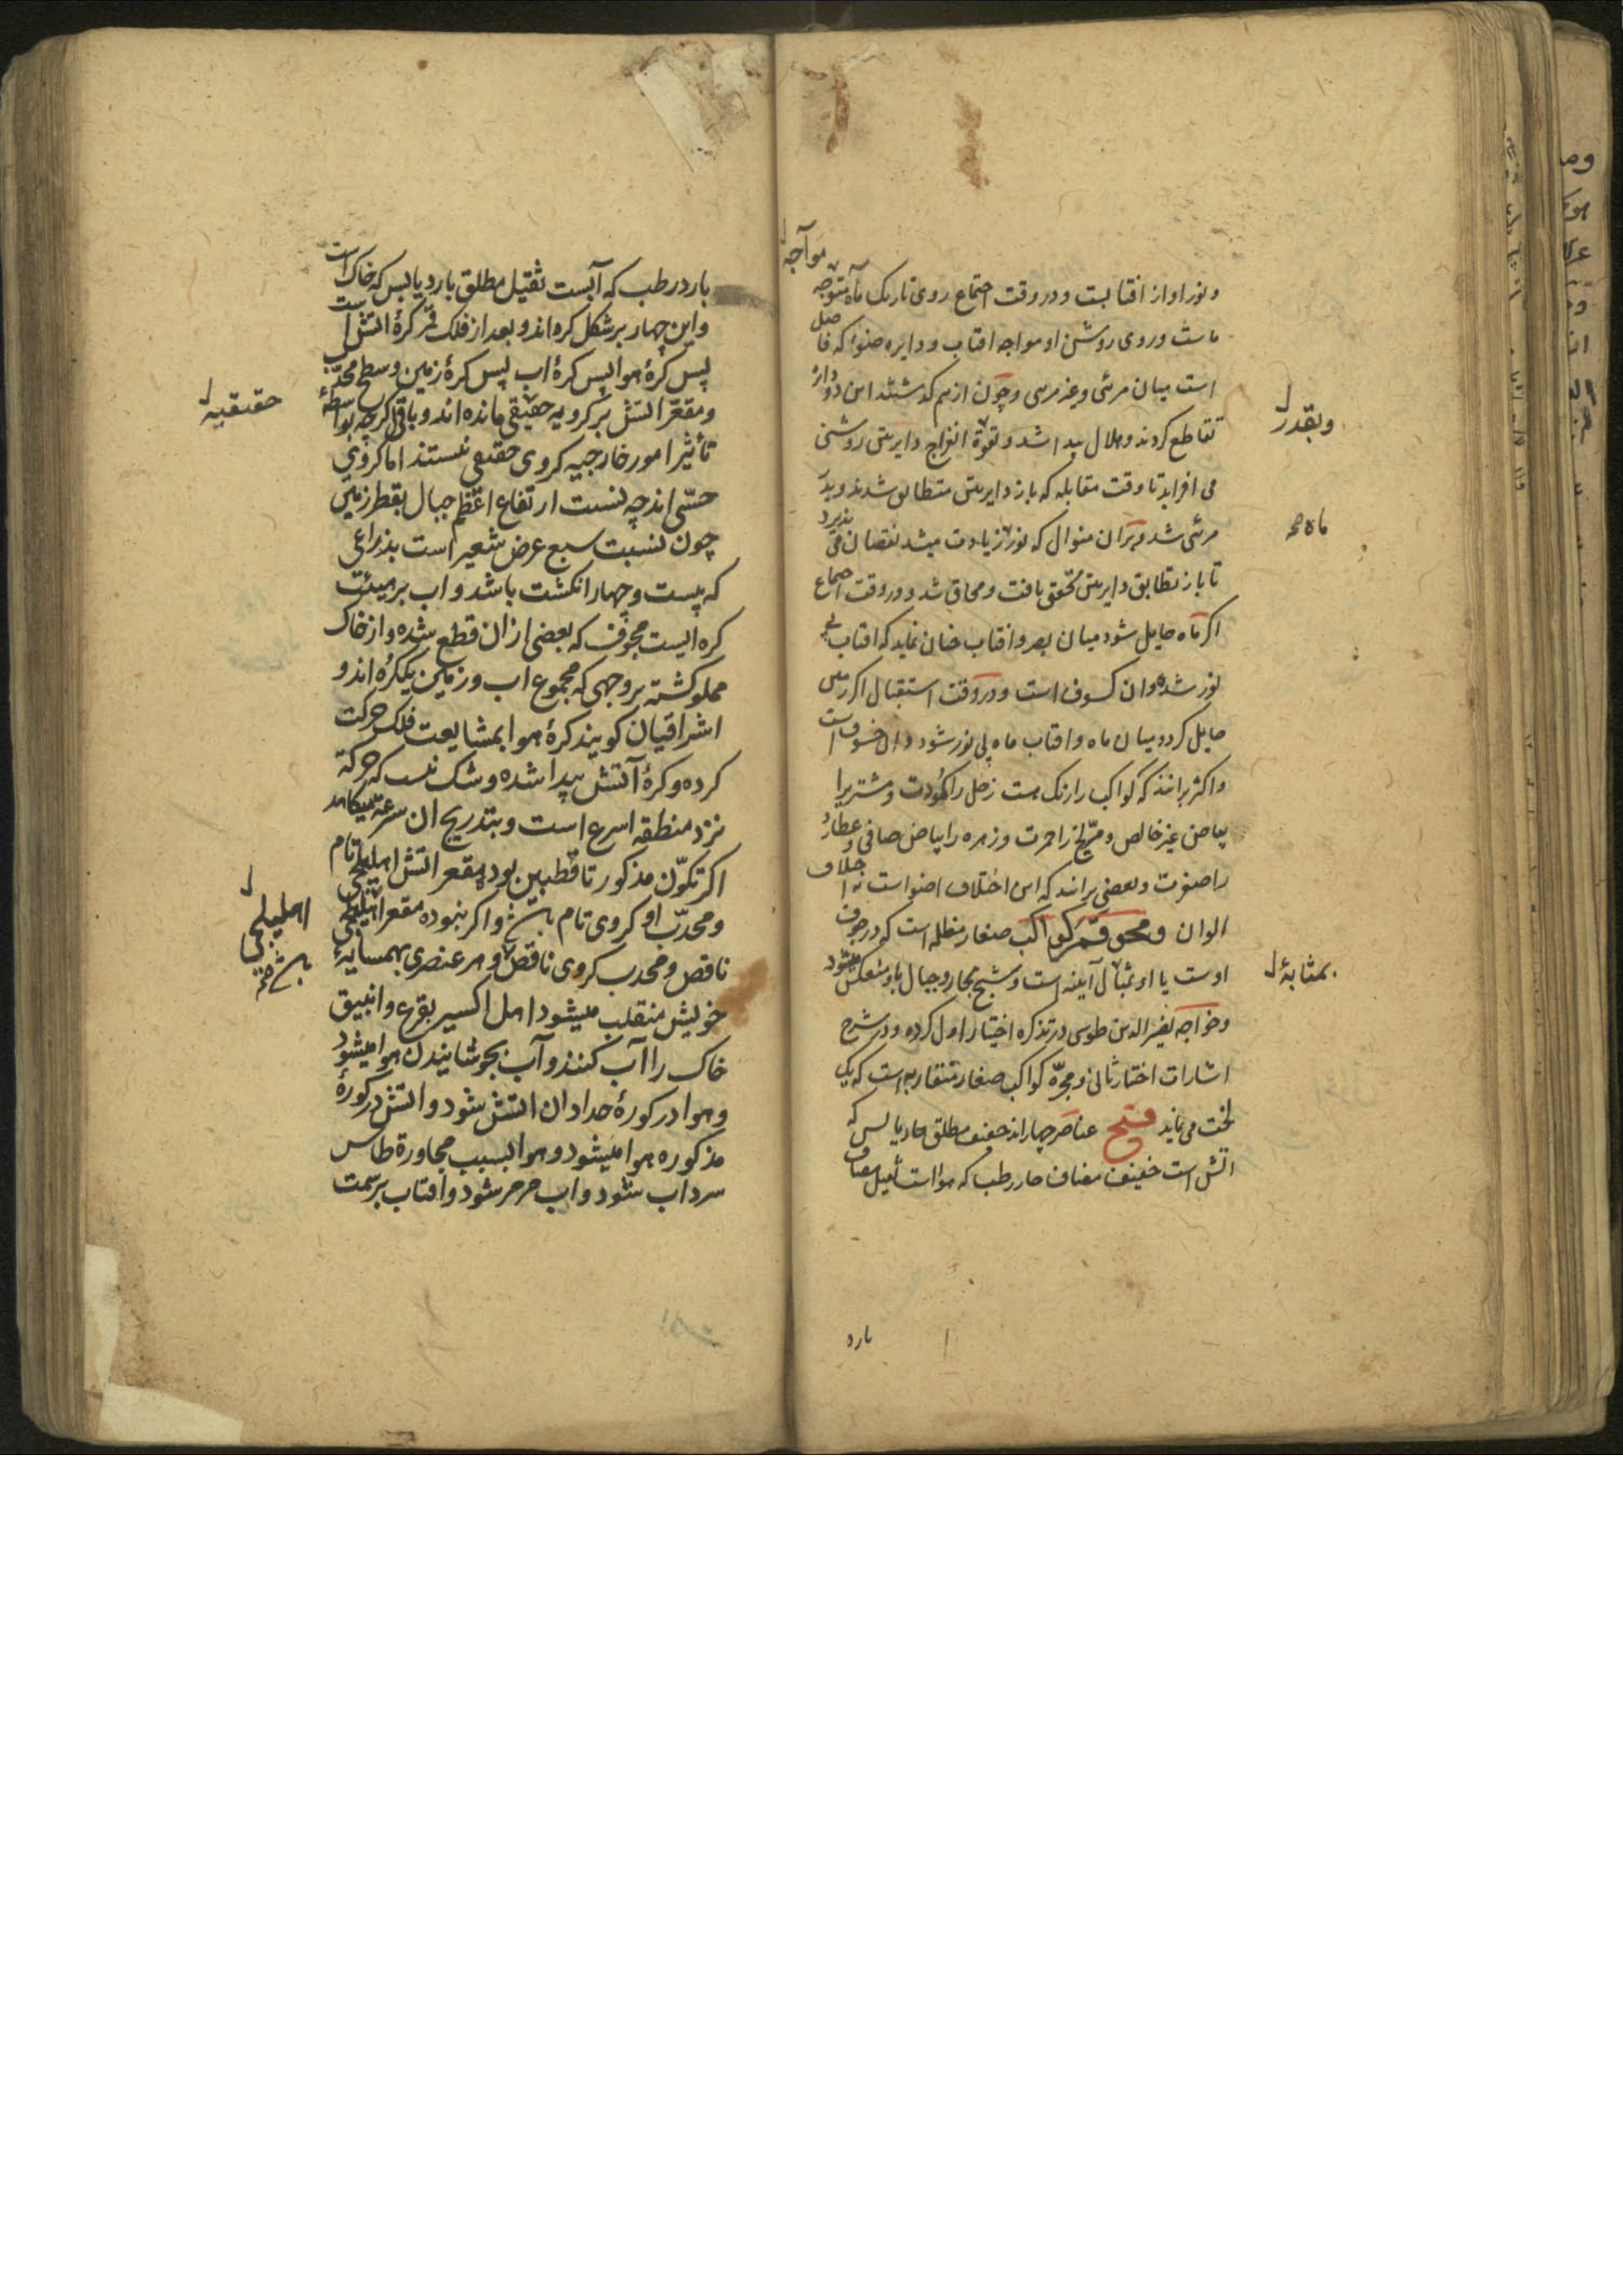 ونور او از افتابست و در وقت اجتماع روی تاریک ماه متوجه
مواجه
ماست و روی روشن او مواجه افتاب و دایره ضوء که فاصل
است میان مرئی و غیر مرئی و چون از هم گذشتند این دو دایره
تقاطع کردند و هلال پیدا شد و بقوة انفراج دایرتین روشنی
وبقدر
می افزاید تا وقت مقابله که باز دایرتین متطابق شدند و بدر
مرئی شد و بران منوال که نور در زیادت میشد نقصان می پذیرد
ماه صح
تا باز تطابق دایرتین تحقق یافت و محاق شد و در وقت اجتماع
اکر ماه حایل شود میان بصر و افتاب چنان نماید که افتاب بی
نور شده و ان کسوف است و در وقت استقبال اکر زمین
حایل کردد میان ماه و افتاب ماه بی نور شود و ان خسوف است
و اکثر برانند که کواکب را رنک هست زحل را کمودت و مشتری را
بیاض غیر خالص و مریخ را حمرت و زهره را بیاض صافی و عطارد
را صفرت و بعضی برانند که این اختلاف اضواست نه اختلاف
الوان و محو قمر کواکب صغار مظلمه است که در جرف
اوست یا او بمثال آینه است و شبح بحار و جبال باو منعکس میشود
بمثابهٔ
و خواجه نصیر الدین طوسی در تذکره اختیار اول کرده و در شرح
اشارات اختیار ثانی و مجره کواکب صغار متقاربه است که یک
لخت می نماید فتح عناصر چهار اند خفیف مطلق حار یابس که
اتش است خفیف مضاف حار رطب که هواست ثقیل مضاف
بارد
بارد رطب که آبست ثقیل مطلق بارد یابس که خاک است
و این چهار بر شکل کره اند و بعد از فلک قمر کرهٔ اتش است
پس کرهٔ هوا پس کرهٔ اب پس کرهٔ زمین و سطح محدب
و مقعر اتش بر کرویه حقیقی مانده اند و باقی کرچه بواسطهٔ
حقیقیه
تأثیر امور خارجیه کروی حقیقی نیستند اما کروی
حسّی اند چه نسبت ارتفاع اعظم جبال بقطر زمین
چون نسبت سبع عرض شعیر است بذراعی
که بیست و چهار انکشت باشد و اب بر هیئت
کره ایست مجوف که بعضی ازان قطع شده و از خاک
مملو کشته بر وجهی که مجموع اب و زمین یک کره اند و
اشراقیان کویند کرهٔ هوا بمشایعت فلک حرکت
کرده و کرهٔ آتش پیدا شده و شک نیست که حرکة
نزد منطقه اسرع است و بتدریج ان سرعة میکاهد
اکر تکوّن مذکور تا قطبین بوده مقعر اتش اهلیلجی تام
و محدّب او کروی تام و اکر نبوده مقعر اهلیلجی
اهلیلجی
ناقص و محدب کروی ناقص و هر عنصری بهمسایهٔ
خویش منقلب میشود اهل اکسیر بقرع و انبیق
خاک را آب کنند و آب بجوشانیدن هوا میشود
و هوا در کورهٔ حدادان اتش شود و اتش در کورهٔ
مذکوره هوا میشود و هوا بسبب مجاورة طاس
سرد اب شود و اب مرمر شود و افتاب بر سمت